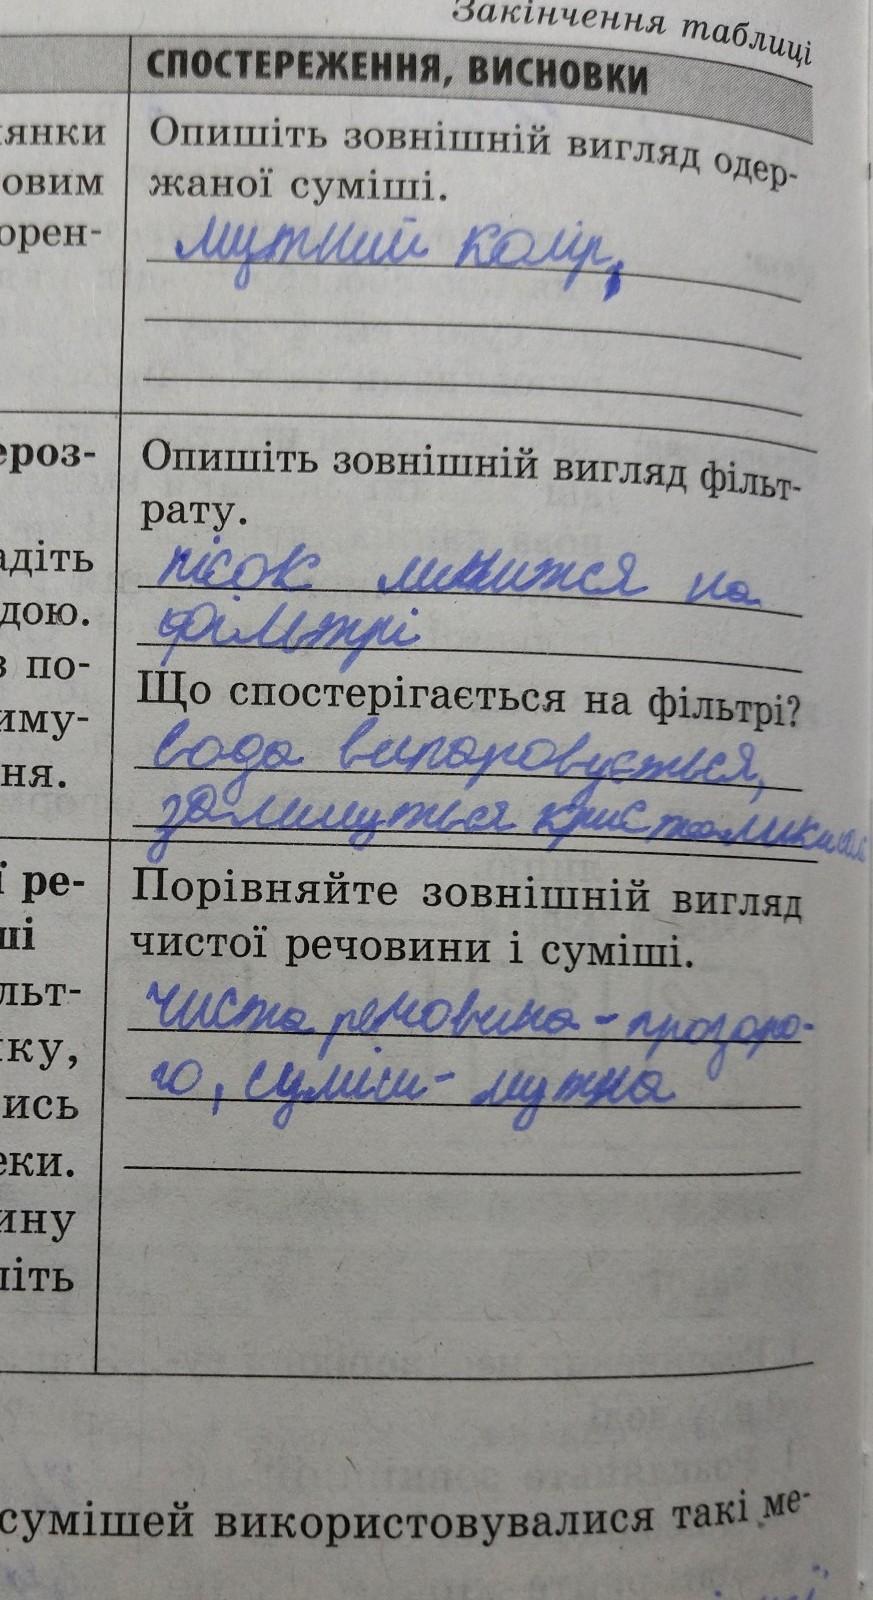 Закінчення таблиці
СПОСТЕРЕЖЕННЯ, ВИСНОВКИ
янки
овим
орен-
Опишіть зовнішній вигляд одер-
жаної суміші.
мутний колір,
ероз-
адіть
дою.
з по-
иму-
ня.
Опишіть зовнішній вигляд фільт-
рату.
пісок лишится на
фільтрі
Що спостерігається на фільтрі?
вода випаровується,
залишуться кристалики
ї ре-
ші
льт-
ку,
ись
еки.
ину
іть
Порівняйте зовнішній вигляд
чистої речовини і суміші.
чиста речовина - прозоро-
го, суміш - мутна
сумішей використовувалися такі ме-